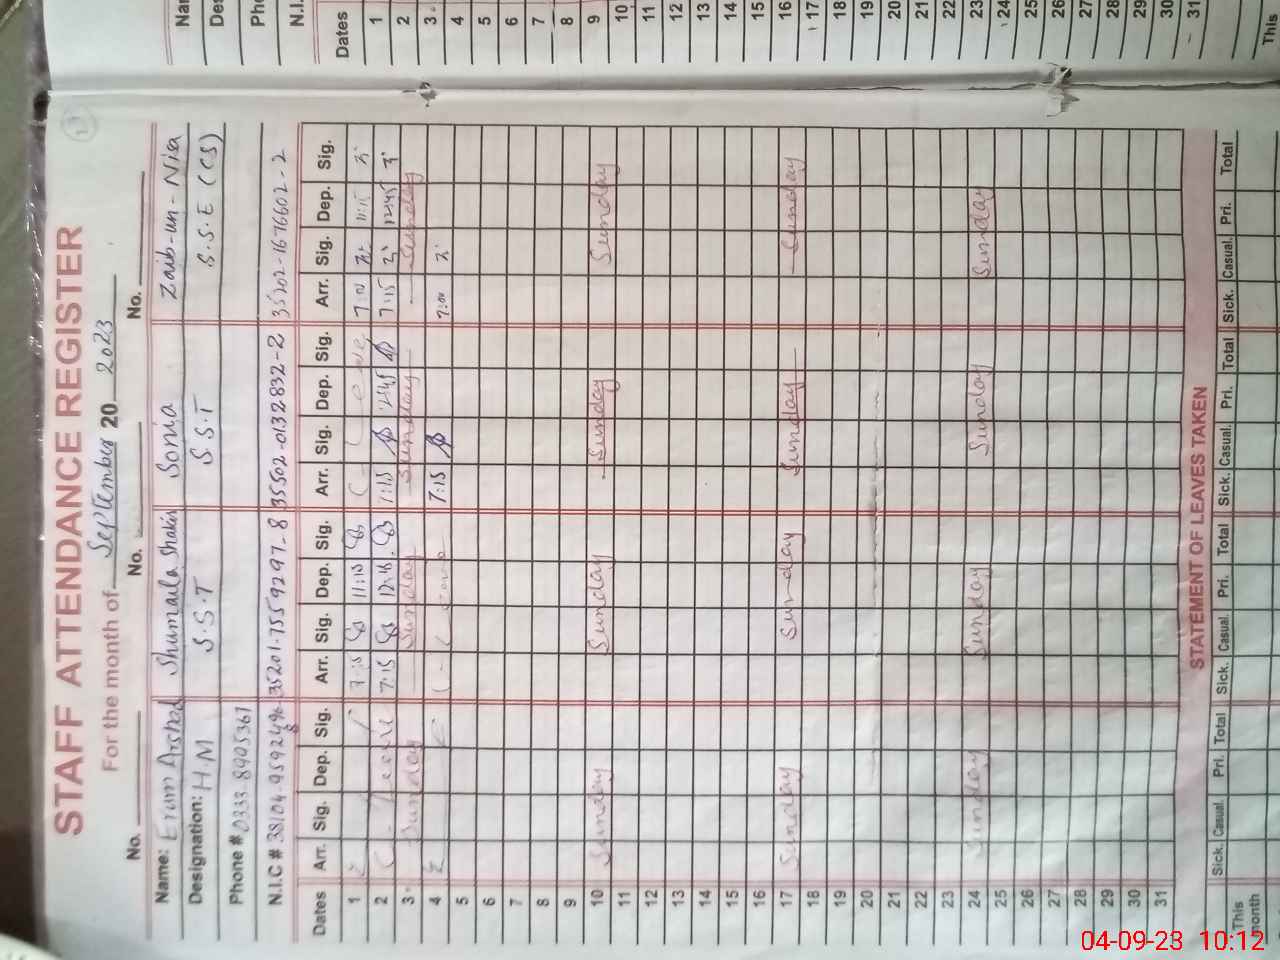 STAFF ATTENDANCE REGISTER
For the month of September 2023
No. No. No. No.
Name: Erum Arshad Shumaila Shaker Sonia Zaib-un-Nisa
Designation: H.M S.S.T S.S.T S.S.E (CS)
Phone # 0333-8905361
N.I.C # 35201-7559297-8 35502-0132832-2 35202-1676602-2
Dates Arr. Sig. Dep. Sig. Arr. Sig. Dep. Sig. Arr. Sig. Dep. Sig. Arr. Sig. Dep. Sig.
1 7:15 11:15 7:00 11:15
2 Leave 7:15 12:45 7:15 12:45 7:15 12:45
3 Sunday Sunday Sunday Sunday
4 7:15 7:00
5
6
7
8
9
10 Sunday Sunday Sunday Sunday
11
12
13
14
15
16
17 Sunday Sunday Sunday Sunday
18
19
20
21
22
23
24 Sunday Sunday Sunday Sunday
25
26
27
28
29
30
31
STATEMENT OF LEAVES TAKEN
Sick. Casual. Pri. Total Sick. Casual. Pri. Total Sick. Casual. Pri. Total Sick. Casual. Pri. Total
This
month
Dates
1
2
3
4
5
6
7
8
9
10
11
12
13
14
15
16
17
18
19
20
21
22
23
24
25
26
27
28
29
30
31
This
04-09-23 10:12